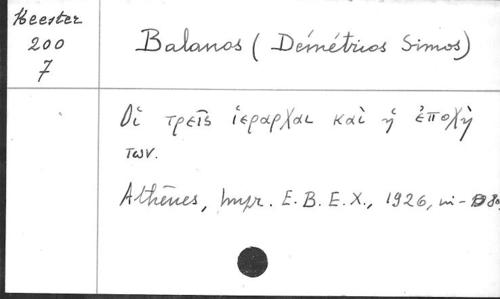 Heester
200
7
Balanos (Démétrios Simos)
Οἱ τρεῖς ἱεραρχαι καὶ ἡ ἐποχὴ
των.
Athēnes, Impr. E. B. E. X., 1926, in-